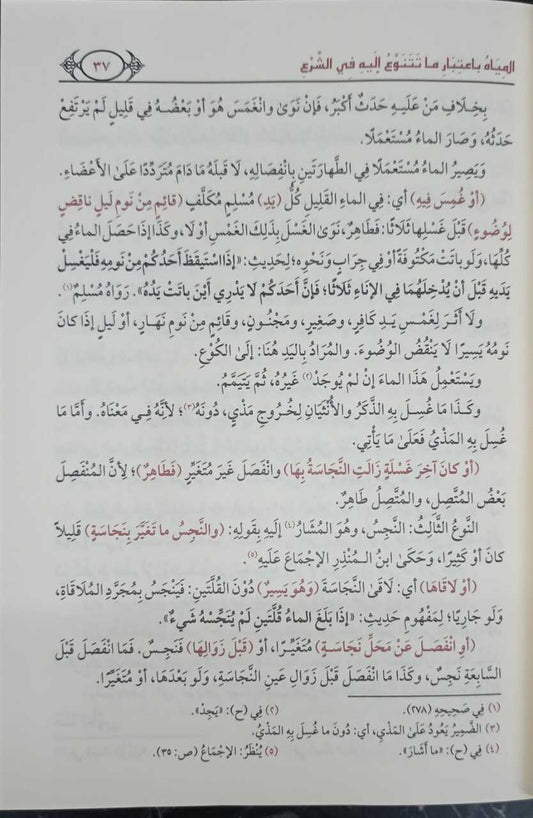 المِيَاهُ بِاعْتِبَارِ ما تَتَنَوَّعُ إِلَيهِ فِي الشَّرْعِ
٣٧
بِخِلَافِ مَنْ عَلَيهِ حَدَثٌ أَكْبَرُ، فَإِنْ نَوَى وَانْغَمَسَ هُوَ أَوْ بَعْضُهُ فِي قَلِيلٍ لَمْ يَرْتَفِعْ
حَدَثُهُ، وَصَارَ الماءُ مُسْتَعْمَلًا.
وَيَصِيرُ الماءُ مُسْتَعْمَلًا فِي الطَّهَارَتَينِ بِانْفِصَالِهِ، لَا قَبْلَهُ مَا دَامَ مُتَرَدِّدًا عَلَى الأَعْضَاءِ.
(أَوْ غُمِسَ فِيهِ) أي: فِي الماءِ القَلِيلِ كُلُّ (يَدِ) مُسْلِمٍ مُكَلَّفٍ (قائِمٍ مِنْ نَومِ لَيلٍ ناقِضٍ
لِوُضُوءٍ) قَبْلَ غَسْلِها ثَلَاثًا: فَطَاهِرٌ، نَوَى الغَسْلَ بِذَلِكَ الغَمْسِ أَوْ لَا، وَكَذَا إِذَا حَصَلَ الماءُ فِي
كُلِّهَا، وَلَو باتَتْ مَكْتُوفَةً أَو فِي جِرَابٍ وَنَحْوِهِ؛ لِحَدِيثِ: «إِذَا اسْتَيقَظَ أَحَدُكُمْ مِنْ نَومِهِ فَلْيَغْسِلْ
يَدَيهِ قَبْلَ أَنْ يُدْخِلَهُمَا فِي الإِنَاءِ ثَلَاثًا؛ فَإِنَّ أَحَدَكُمْ لَا يَدْرِي أَيْنَ باتَتْ يَدُهُ». رَوَاهُ مُسْلِمٌ(١).
وَلَا أَثَرَ لِغَمْسِ يَدِ كافِرٍ، وَصَغِيرٍ، وَمَجْنُونٍ، وَقائِمٍ مِنْ نَومِ نَهَارٍ، أَوْ لَيلٍ إِذَا كانَ
نَومُهُ يَسِيرًا لَا يَنْقُضُ الوُضُوءَ. وَالمُرَادُ بِاليَدِ هُنَا: إِلَى الكُوْعِ.
وَيَسْتَعْمِلُ هَذَا الماءَ إِنْ لَمْ يُوجَدْ(٢) غَيرُهُ، ثُمَّ يَتَيَمَّمُ.
وَكَذَا مَا غُسِلَ بِهِ الذَّكَرُ وَالأُنْثَيَانِ لِخُرُوجِ مَذْيٍ، دُونَهُ(٣)؛ لأَنَّهُ فِي مَعْنَاهُ. وَأَمَّا مَا
غُسِلَ بِهِ المَذْيُ فَعَلَى مَا يَأْتِي.
(أَوْ كانَ آخِرَ غَسْلَةٍ زَالَتِ النَّجَاسَةُ بِهَا) وَانْفَصَلَ غَيرَ مُتَغَيِّرٍ (فَطَاهِرٌ)؛ لِأَنَّ المُنْفَصِلَ
بَعْضُ المُتَّصِلِ، وَالمُتَّصِلُ طَاهِرٌ.
النَّوعُ الثَّالِثُ: النَّجِسُ، وَهُوَ المُشَارُ(٤) إِلَيهِ بِقَولِهِ: (والنَّجِسُ ما تَغَيَّرَ بِنَجَاسَةٍ) قَلِيلًا
كانَ أَوْ كَثِيرًا، وَحَكَى ابنُ المُنْذِرِ الإِجْمَاعَ عَلَيهِ(٥).
(أَوْ لاقَاهَا) أي: لَاقَى النَّجَاسَةَ (وَهُوَ يَسِيرٌ) دُونَ القُلَّتَينِ: فَيَنْجُسُ بِمُجَرَّدِ المُلَاقَاةِ،
وَلَو جَارِيًا؛ لِمَفْهُومِ حَدِيثِ: «إِذَا بَلَغَ الماءُ قُلَّتَينِ لَمْ يُنَجِّسْهُ شَيءٌ».
(أَوِ انْفَصَلَ عَنْ مَحَلِّ نَجَاسَةٍ) مُتَغَيِّرًا، أَوْ (قَبْلَ زَوَالِهَا) فَنَجِسٌ. فَمَا انْفَصَلَ قَبْلَ
السَّابِعَةِ نَجِسٌ، وَكَذَا مَا انْفَصَلَ قَبْلَ زَوَالِ عَينِ النَّجَاسَةِ، وَلَو بَعْدَهَا، أَوْ مُتَغَيِّرًا.
(١) فِي صَحِيحِهِ (٢٧٨).
(٢) فِي (ح): «يَجِدْ».
(٣) الضَّمِيرُ يَعُودُ عَلَى المَذْيِ، أي: دُونَ ما غُسِلَ بِهِ المَذْيُ.
(٤) فِي (ح): «ما أَشَارَ».
(٥) يُنْظَرُ: الإِجْمَاعُ (ص: ٣٥).